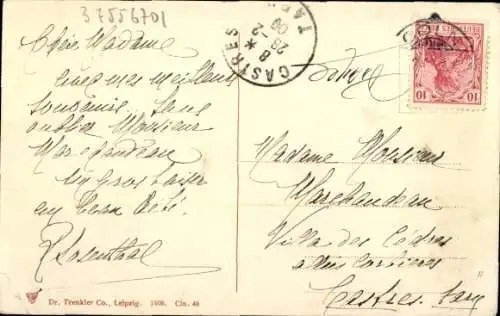 37556701
Chère Madame
avec mes meilleurs
souvenirs. Sans
oublier Monsieur
Marchandeau
un gros baiser
au beau bébé.
Rosenthal
CASTRES
8 *
26-2
06
TARN
10 10
Madame Monsieur
Marchandeau
Villa des Cèdres
Castres. Tarn
Dr. Trenkler Co., Leipzig. 1906. Cln. 46